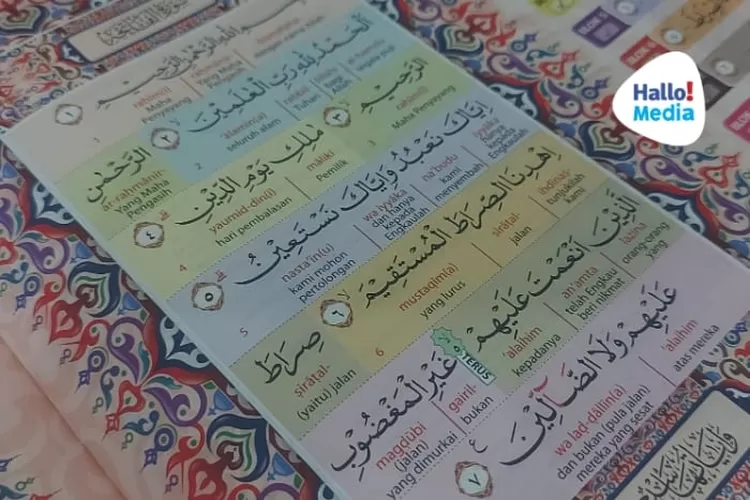 سُورَةُ الْفَاتِحَةِ
بِسْمِ اللّٰهِ الرَّحْمٰنِ الرَّحِيْمِ ١
rahim(i)
Maha Penyayang
1
اَلْحَمْدُ لِلّٰهِ رَبِّ الْعٰلَمِيْنَ ٢ الرَّحْمٰنِ
rabbil- 'alamin(a) ar-rahmānir-
Tuhan seluruh alam Yang Maha Pengasih
2
الرَّحِيْمِ ٣ مٰلِكِ يَوْمِ الدِّيْنِ ٤
rahim(i) māliki yaumid-dīn(i)
Maha Penyayang Pemilik hari pembalasan
3 4
اِيَّاكَ نَعْبُدُ وَاِيَّاكَ نَسْتَعِيْنُ ٥
iyyāka na'budu wa iyyāka nasta'īn(u)
hanya kepada Engkaulah kami menyembah dan hanya kepada Engkaulah kami mohon pertolongan
5
اِهْدِنَا الصِّرَاطَ الْمُسْتَقِيْمَ ٦ صِرَاطَ
ihdinaṣ- ṣirāṭal- mustaqīm(a) ṣirāṭal-
tunjukilah kami jalan yang lurus (yaitu) jalan
6
الَّذِيْنَ اَنْعَمْتَ عَلَيْهِمْ غَيْرِ الْمَغْضُوْبِ
lażīna an'amta 'alaihim gairil- magḍūbi
orang-orang yang telah Engkau beri nikmat kepadanya bukan (jalan) yang dimurkai
TERUS
عَلَيْهِمْ وَلَا الضَّاۤلِّيْنَ ٧
'alaihim wa laḍ-ḍāllīn(a)
atas mereka dan bukan (pula jalan) mereka yang sesat
Hallo!
Media